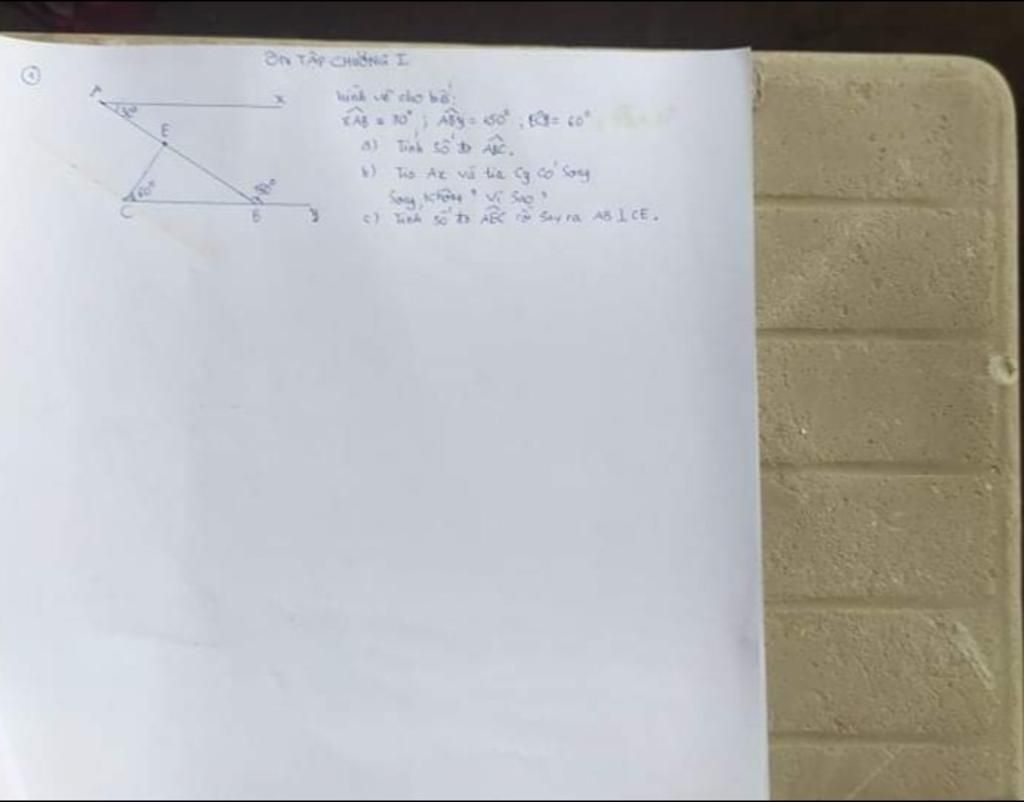 ÔN TẬP CHƯƠNG I
1
A
x
30°
E
60°
150°
C
B
y
hình vẽ cho biết:
xAB = 30° ; ABy = 150° , ECB = 60°
a) Tính số đo ABC.
b) Tia Ax và tia Cy có song
song không ? Vì sao ?
c) Tính số đo AEC rồi suy ra AB ⊥ CE.